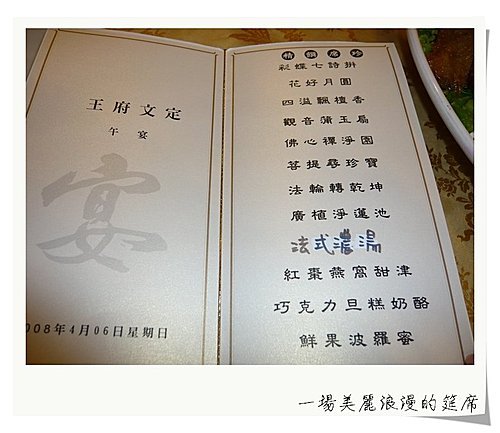 王府文定
午宴
宴
2008年4月06日星期日
精饌席珍
彩蝶七詩拼
花好月圓
四溢飄檀香
觀音蒲玉扇
佛心禪淨園
菩提尋珍寶
法輪轉乾坤
廣植淨蓮池
法式濃湯
紅棗燕窩甜津
巧克力旦糕奶酪
鮮果波羅蜜
一場美麗浪漫的筵席